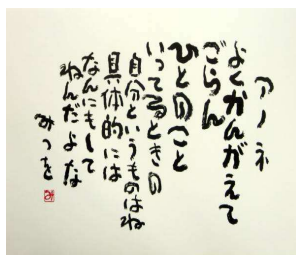 アノネ
よくかんがえて
ごらん
ひとのこと
いってるときの
自分というものはね
具体的には
なんにもして
ねんだよな
みつを